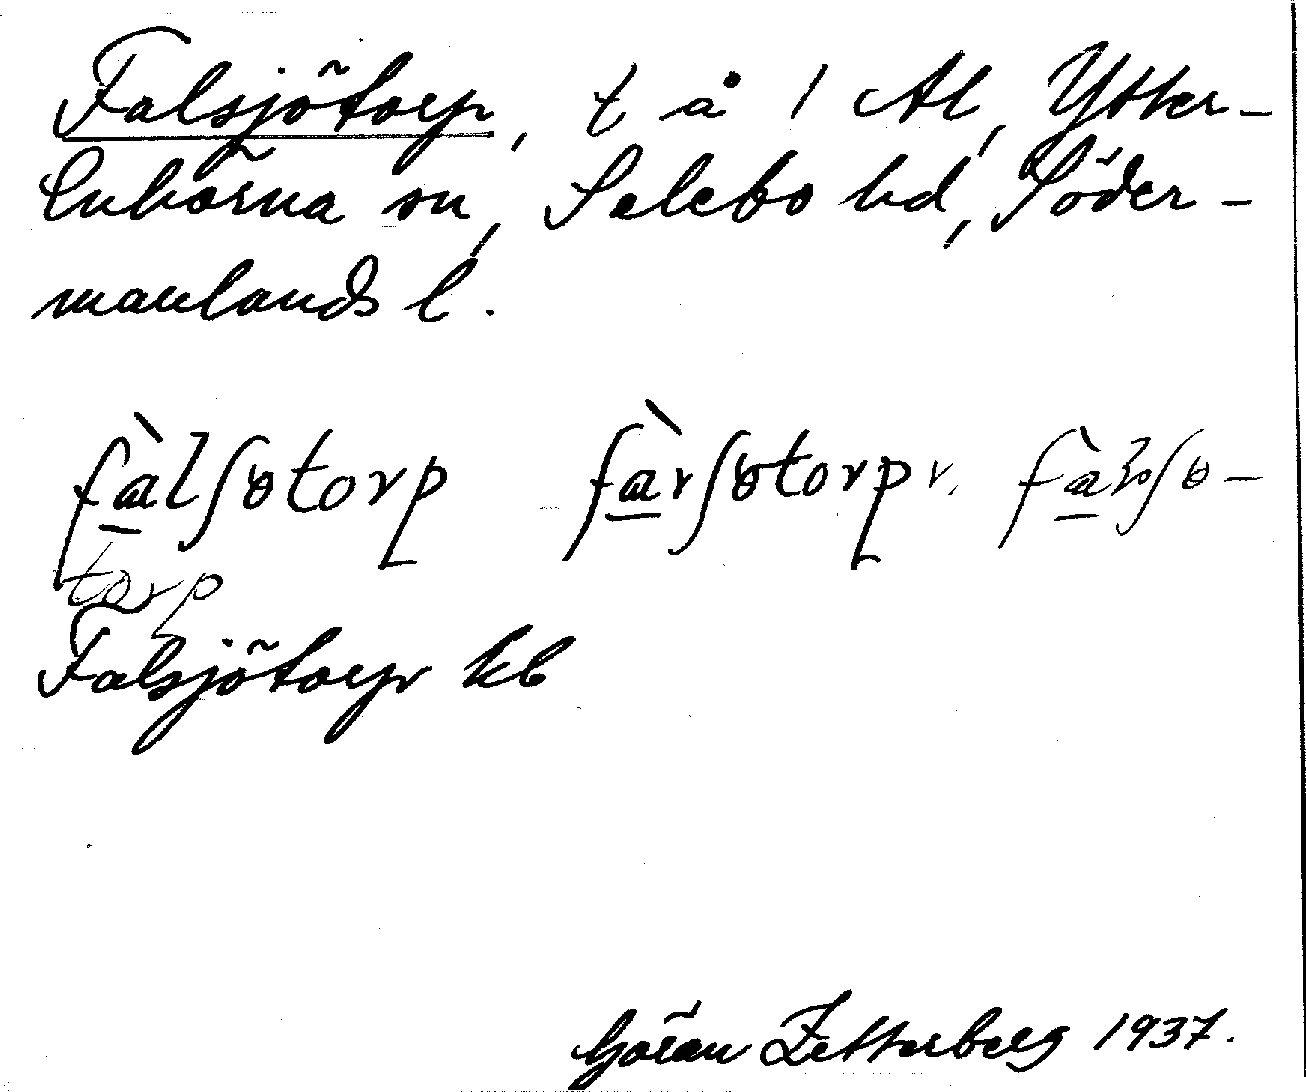 Falsjötorp, t å 1 Al, Ytter-
Enhörna sn, Selebo hd, Söder-
manlands l.
fàlʃɵtorp fàrʃɵtorp v. fàhʃɵ-
torp
Falsjötorp kb
Göran Zetterberg 1937.